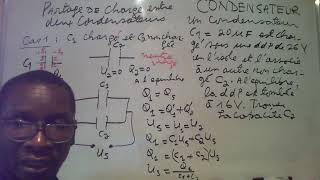 Partage de charge entre
deux Condensateurs
Cas 1 : C1 chargé et C2 non char
gé
C1
C2
U2=0 Q2=0
A l'équilibre
Q1 = Qs
Q1 = Q'1 + Q'2
Us = U1 = U2
Q1 = C1Us + C2Us
Q1 = (C1 + C2)Us
Us = Q1/C1+C2
C2
Us
CONDENSATEUR
Un Condensateur
C1 = 20µF est char
gé sous une ddp de 26V
on l'isole et l'associe
à un autre non char
gé C2. A l'équilibre,
la ddp est tombée
à 16V. Trouver
la capacité C2